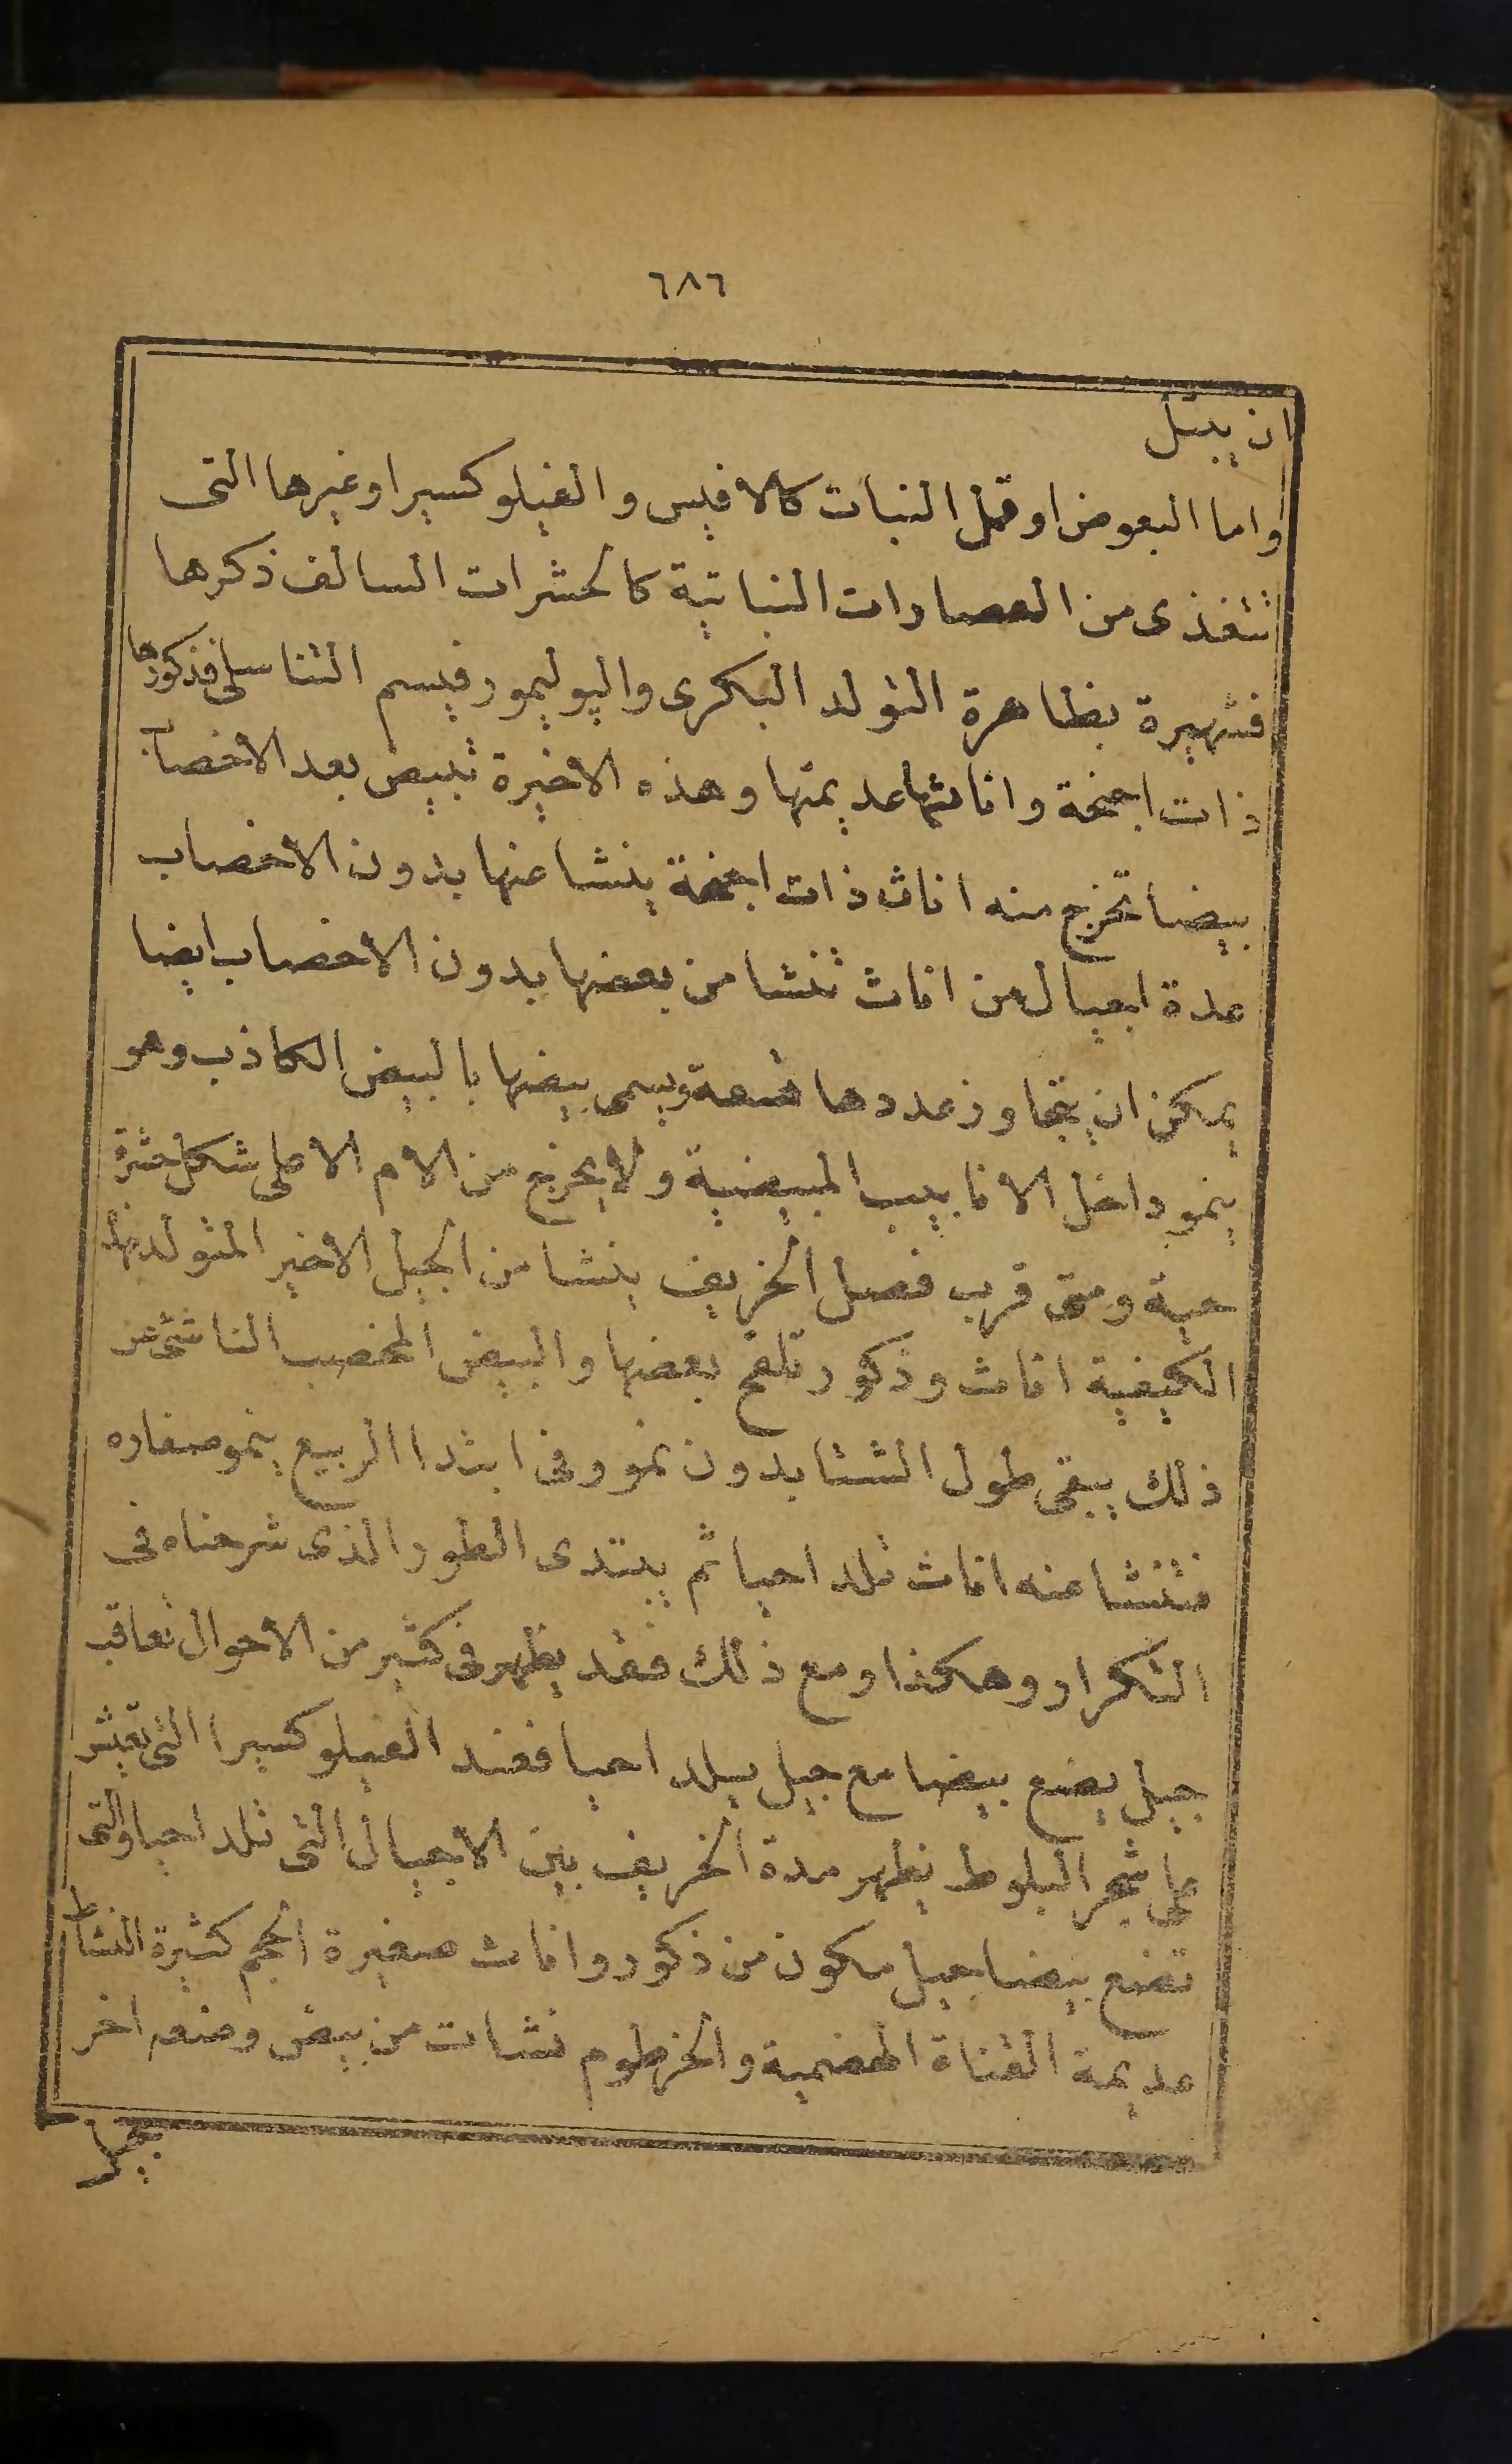 ٦٨٦
ان يبتل
واما البعوض او قمل النبات كالافيس والفيلوكسيرا وغيرها التى
تتغذى من العصارات النباتية كالحشرات السالف ذكرها
فشهيرة بظاهرة التولد البكرى والپوليمورفيسم التناسلى فذكورها
ذات اجنحة واناثها عديمتها وهذه الاخيرة تبيض بعد الاخصاب
بيضا تخرج منه اناث ذات اجنحة ينشا عنها بدون الاخصاب
عدة اجيال من اناث تنشا من بعضها بدون الاخصاب ايضا
يمكن ان يتجاوز عددها تسعة ويسمى بيضها بالبيض الكاذب وهو
ينمو داخل الانابيب المبيضية ولا يخرج من الام الا على شكل حشرة
حية ومتى قرب فصل الخريف ينشا من الجيل الاخير المتولد بهذه
الكيفية اناث وذكور تلقح بعضها والبيض المخصب الناشئ عن
ذلك يبقى طول الشتا بدون نمو وفى ابتدا الربيع ينمو صغاره
فتنشا عنه اناث تلد احيا ثم يبتدى الطور الذى شرحناه فى
التكرار وهكذا ومع ذلك فقد يظهر فى كثير من الاحوال تعاقب
جيل يضع بيضا مع جيل يلد احيا فعند الفيلوكسيرا التى تعيش
على شجر البلوط يظهر مدة الخريف بين الاجيال التى تلد احيا والتى
تضع بيضا جيل مكون من ذكور واناث صغيرة الحجم كثيرة النشاط
عديمة القناة الهضمية والخرطوم نشات من بيض وضعه اخر